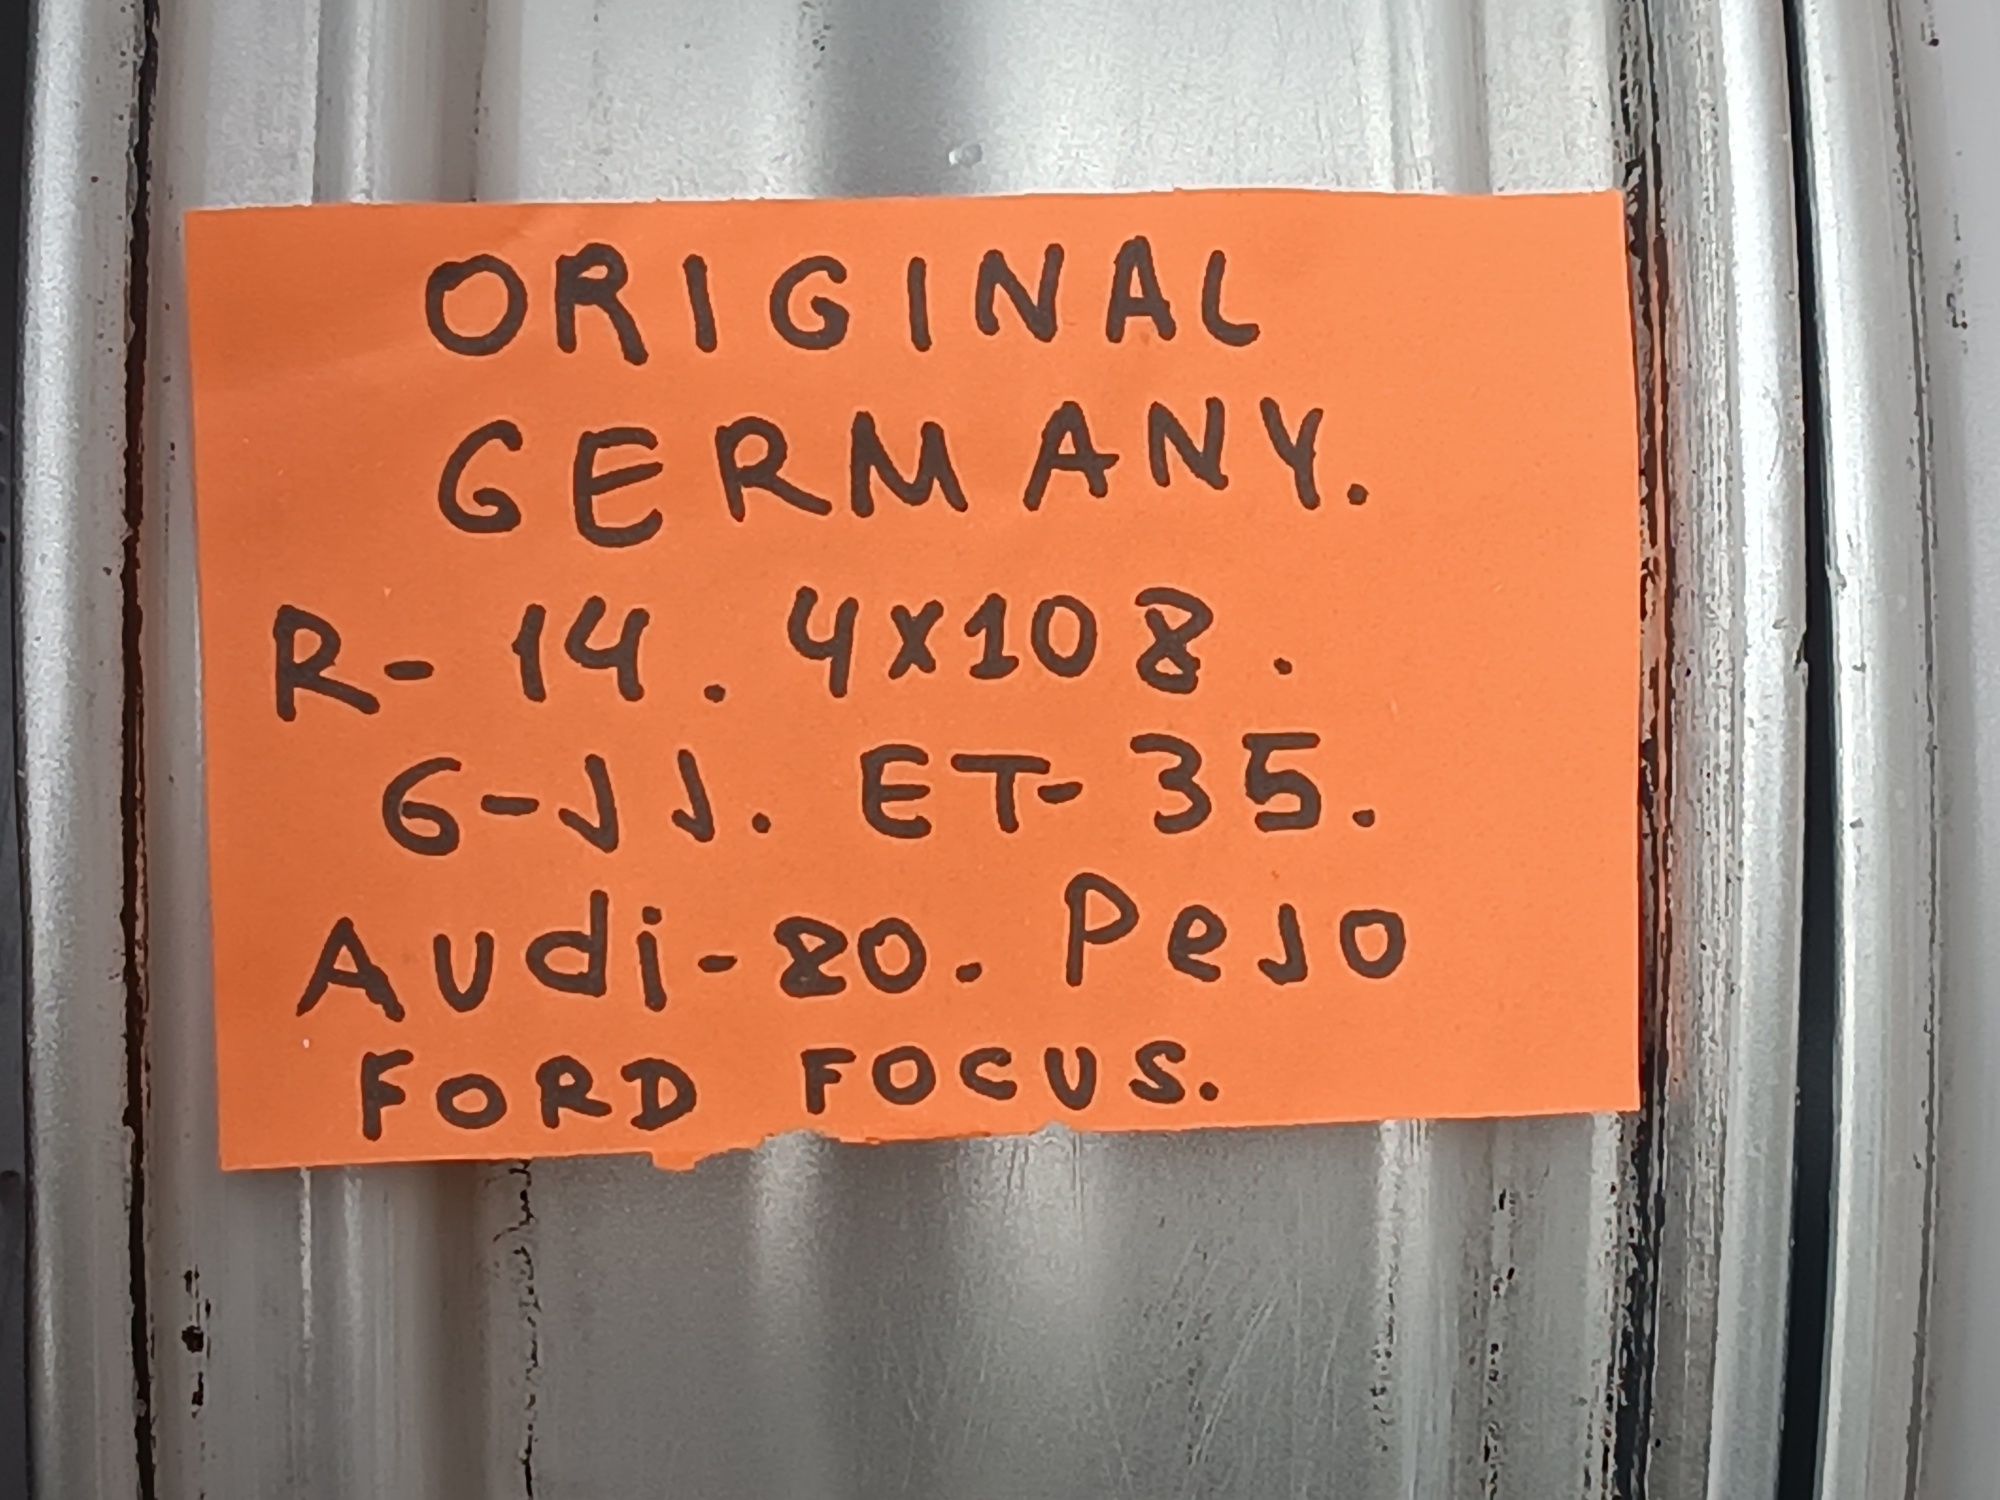 ORIGINAL
GERMANY.
R-14. 4x108.
6-JJ. ET-35.
Audi-80. Peso
FORD FOCUS.